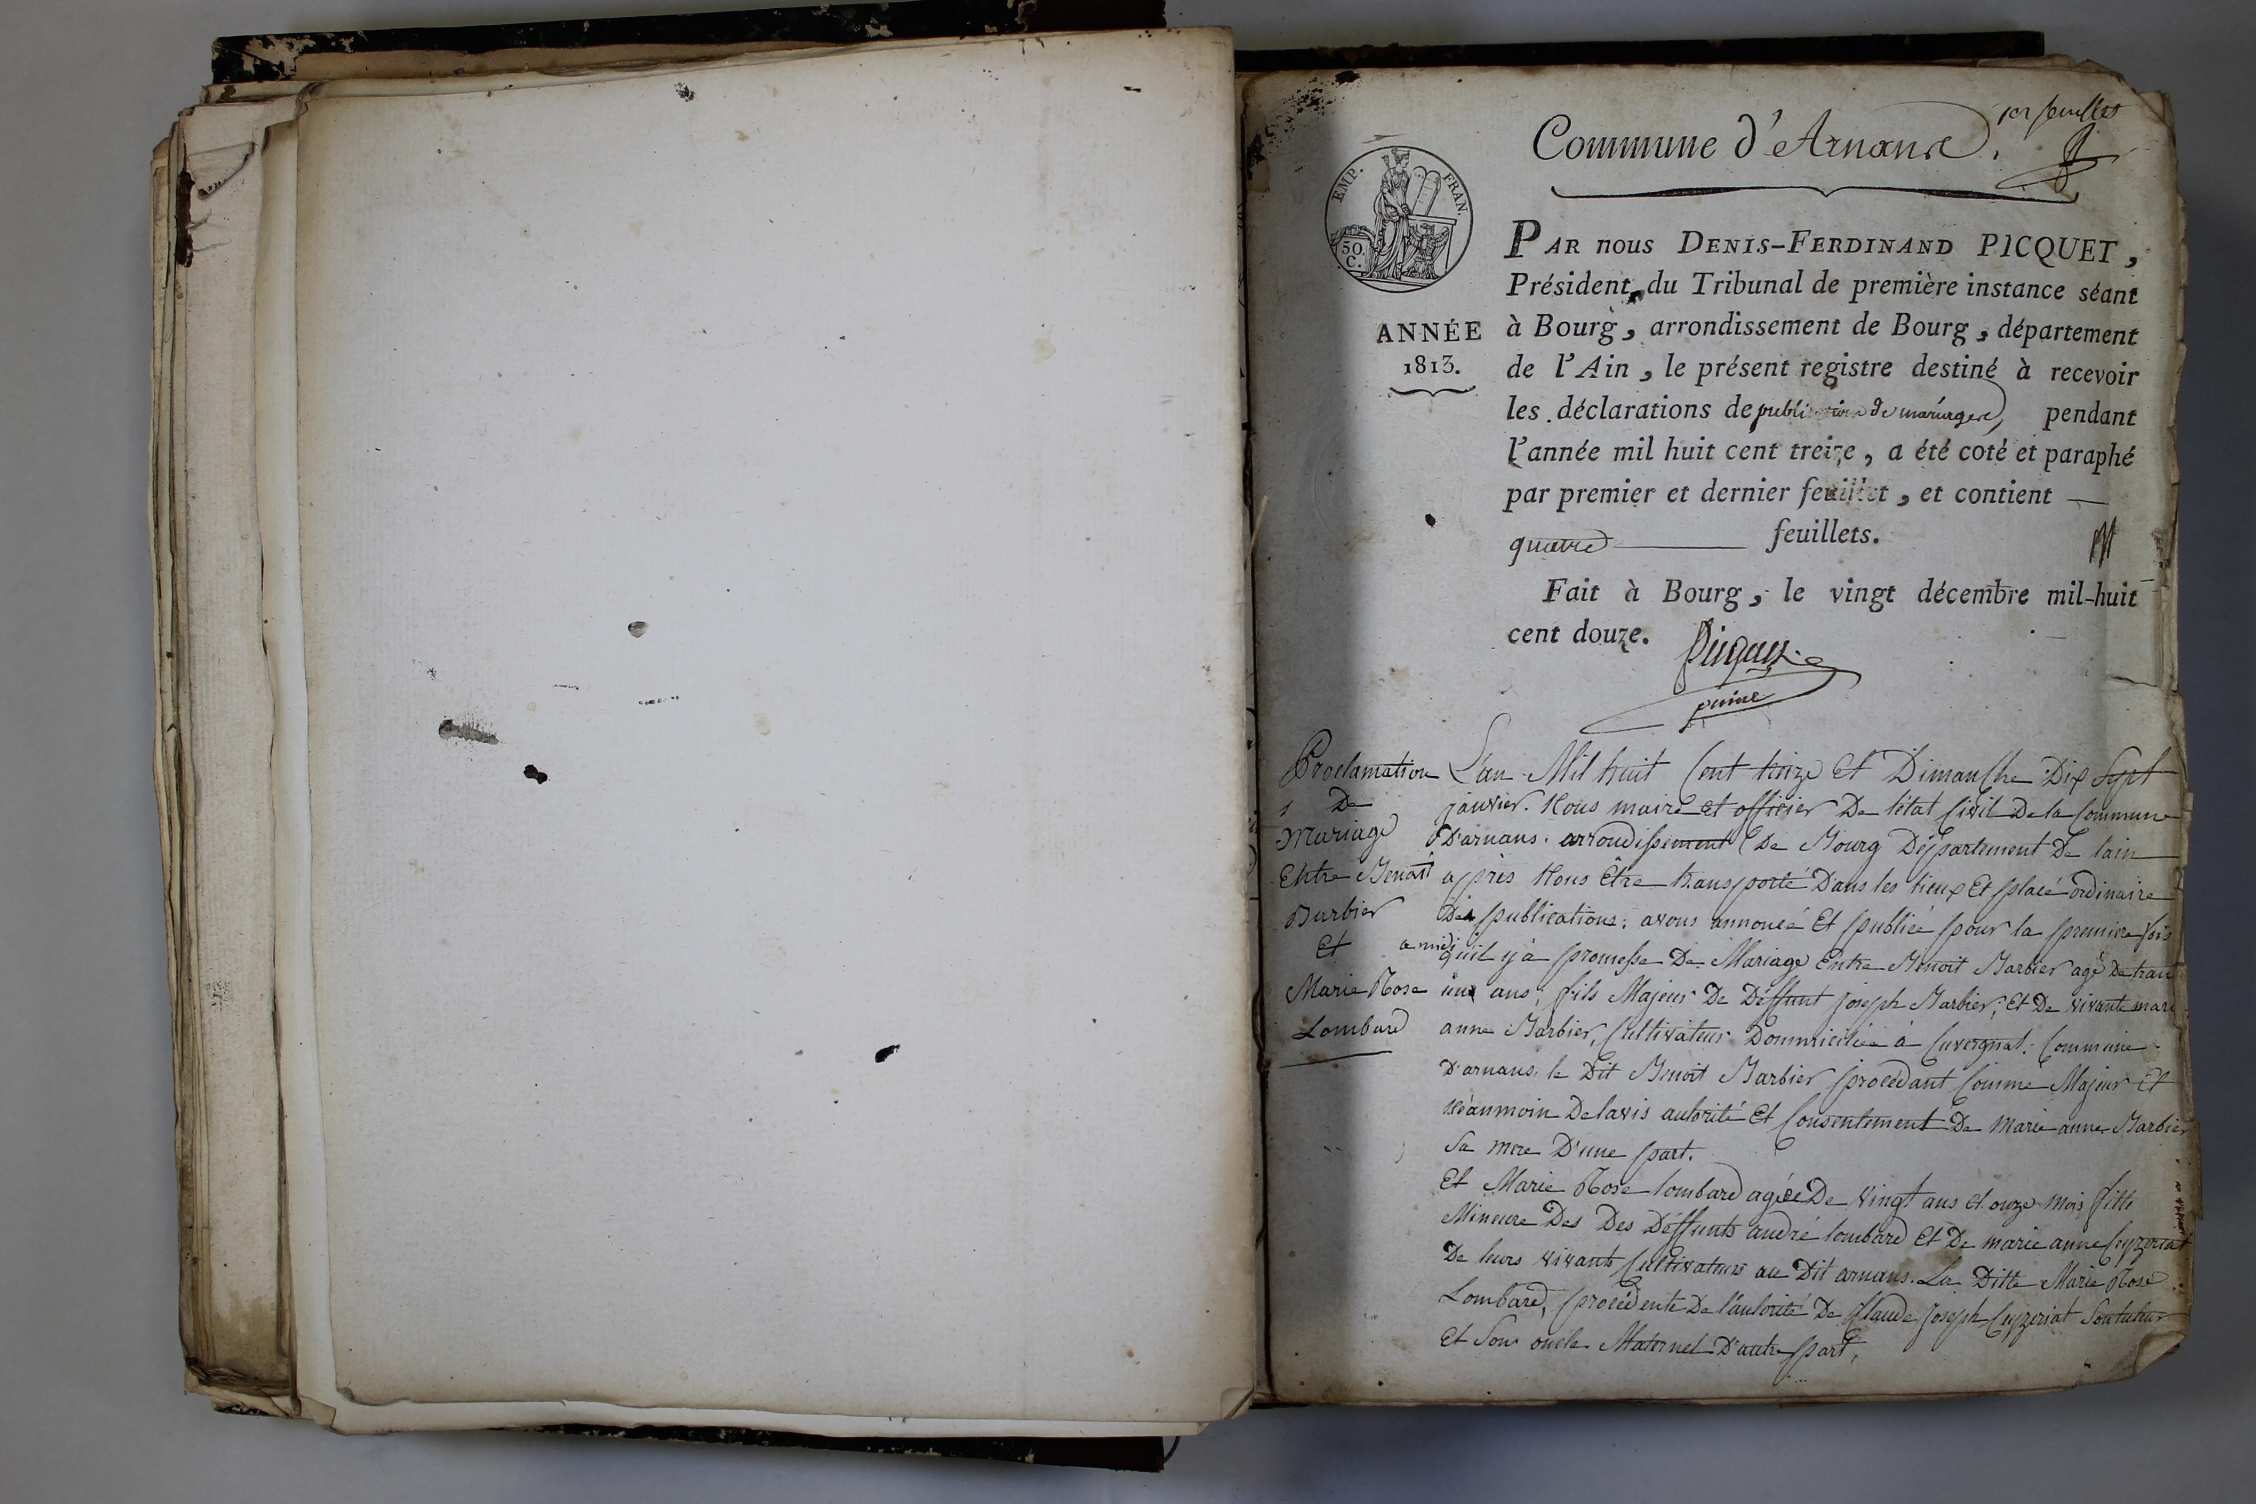 1er feuillet
Commune d'Arnans.
EMP. FRAN.
50 C.
PAR nous DENIS-FERDINAND PICQUET,
Président du Tribunal de première instance séant
ANNÉE
1813.
à Bourg, arrondissement de Bourg, département
de l'Ain, le présent registre destiné à recevoir
les déclarations de publication de mariages pendant
l'année mil huit cent treize, a été coté et paraphé
par premier et dernier feuillet, et contient —
quatre — feuillets.
Fait à Bourg, le vingt décembre mil-huit
cent douze.
Picquet
Proclamation
1 De
Mariage
Entre Benoit
Barbier
Et
Marie Rose
Lombard
L'an Mil huit Cent treize Et Dimanche Dix Sept
janvier. Nous maire et officier De l'état Civil De la Commune
D'arnans. arrondissement De Bourg Département De lain
après Nous Être transporté Dans les lieux Et place ordinaire
Des publications: avons annoncé Et publiée pour la premiere fois
a midi quil y à promesse De Mariage Entre Benoit Barbier agé De trant
un ans, fils Majeur De Déffunt joseph Barbier, Et De vivante marie
anne Barbier, Cultivateur Dommiciliée à Cuvergnat. Commune
D'arnans, le Dit Benoit Barbier procédant Comme Majeur Et
néanmoin De lavis autorité Et Consentement De marie anne Barbier
Sa mere D'une part.
Et Marie Rose lombard agée De vingt ans Et onze Mois fille
Mineure Des Des Déffunts andré lombard Et De marie anne Ceyzeriat
De leurs vivants Cultivateurs au Dit arnans. La Ditte Marie Rose
Lombard, procédente De l'autorité De Claude joseph Ceyzeriat Son tuteur
Et Son oncle Maternel D'autre part,